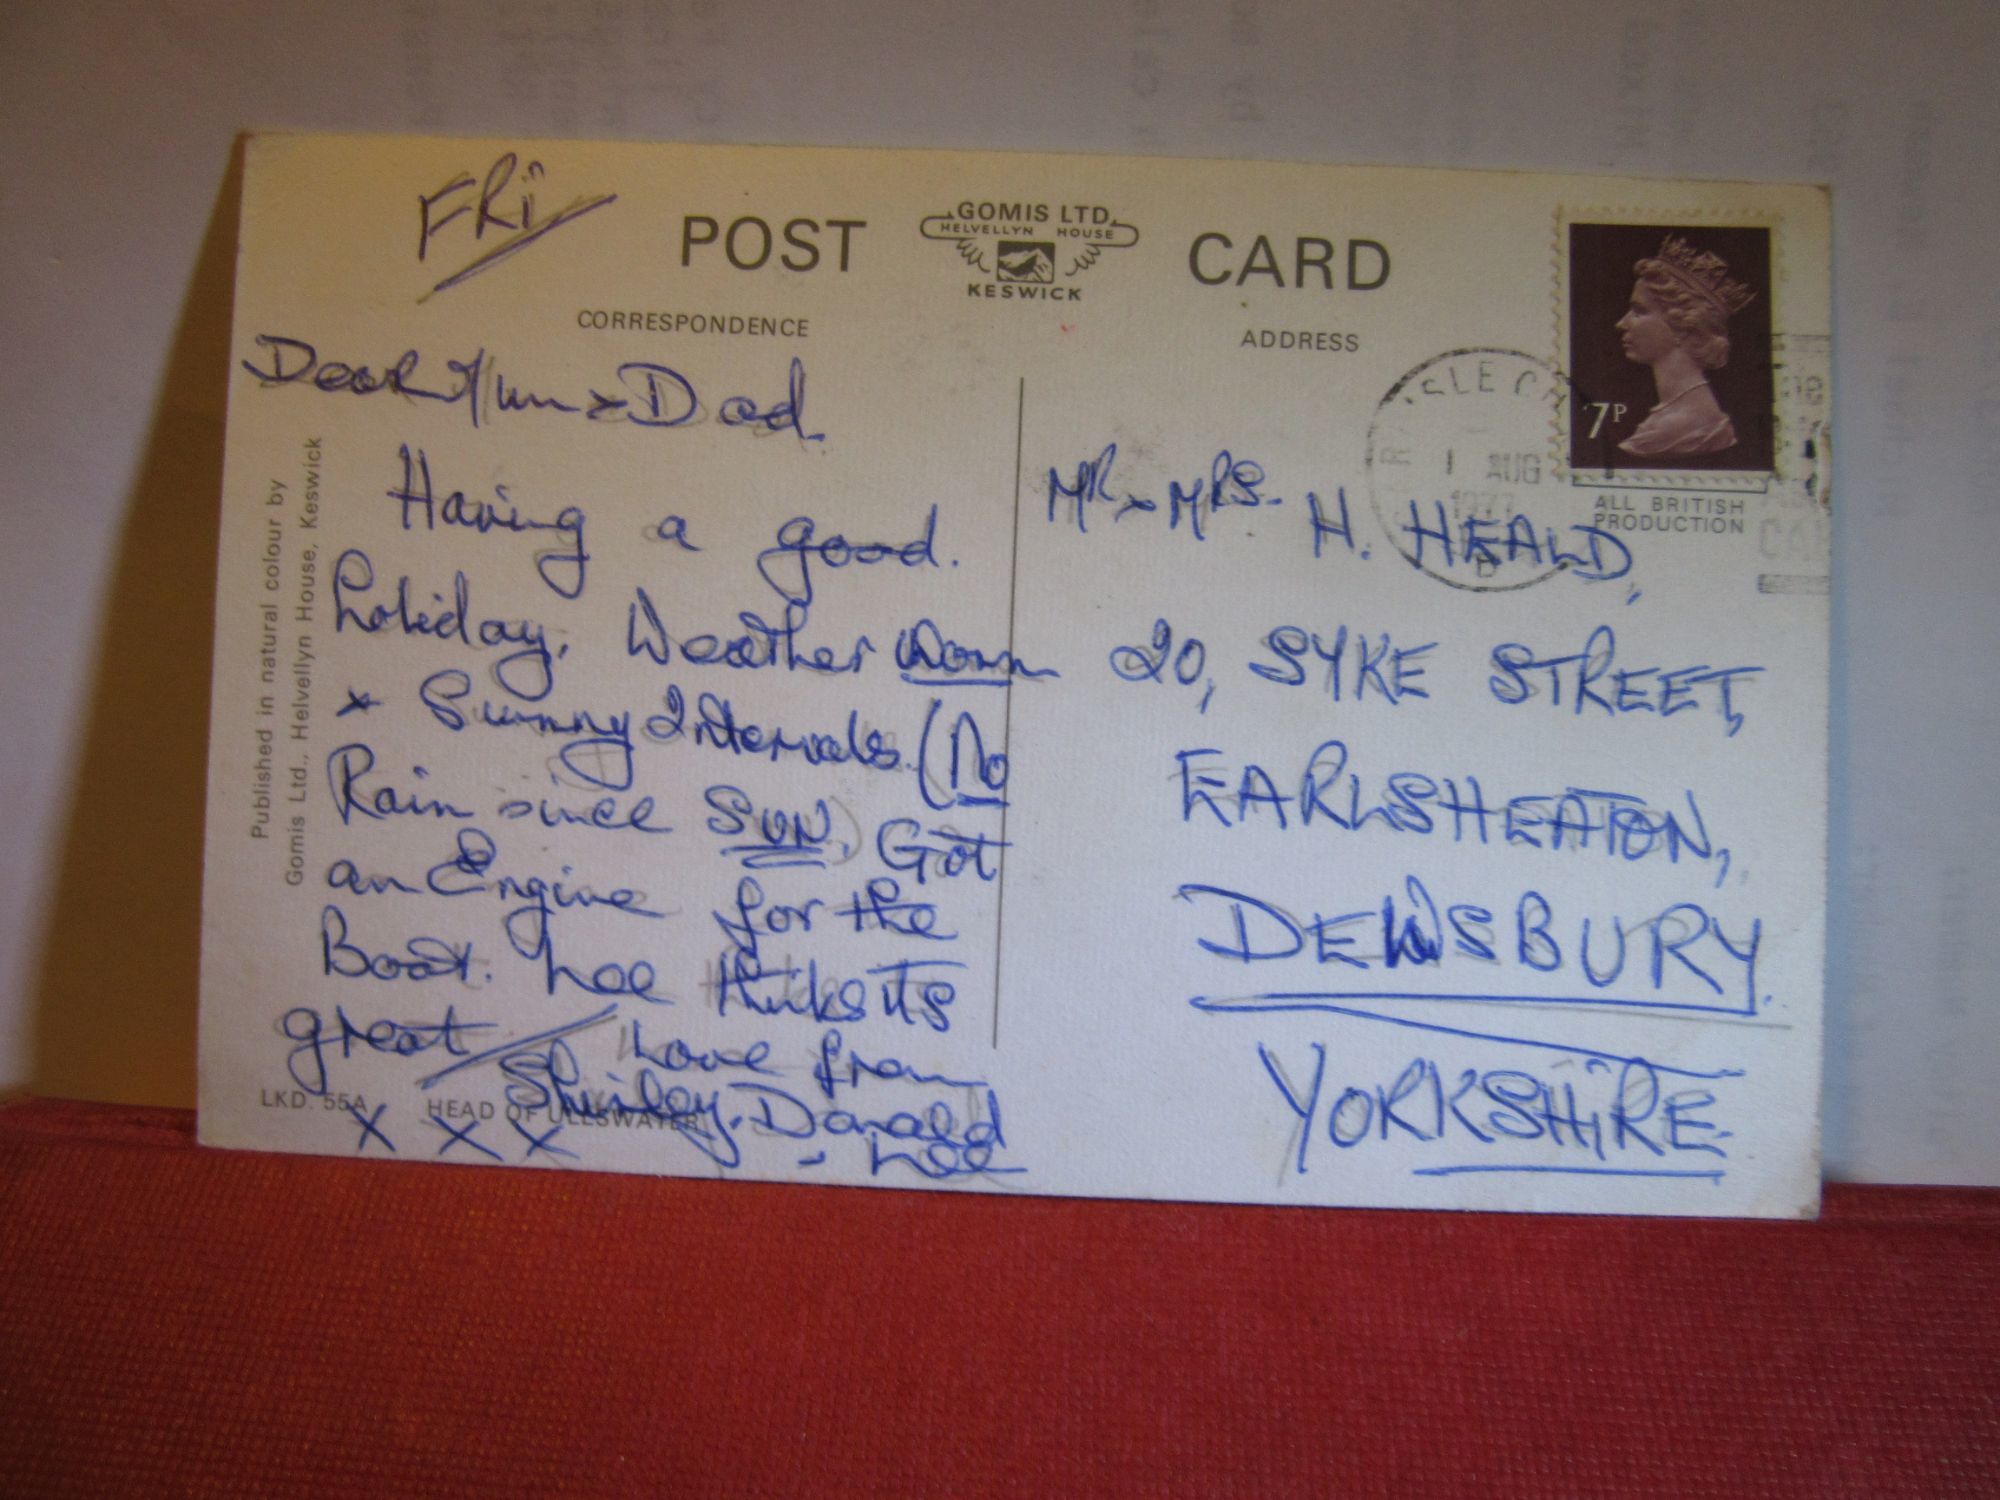 FRi
POST CARD
GOMIS LTD.
HELVELLYN HOUSE
KESWICK
CORRESPONDENCE
ADDRESS
7P
1 AUG
1977
ALL BRITISH
PRODUCTION
Dear Mum & Dad.
Having a good.
holiday. Weather Warm
& Sunny Intervals. (No
Rain since SUN.) Got
an Engine for the
Boat. Lee thinks its
great Love from
Shirley. Donald
& Lee
x x x
MR & MRS. H. HEALD,
20, SYKE STREET,
EARLSHEATON,
DEWSBURY.
YORKSHiRE.
Published in natural colour by
Gomis Ltd., Helvellyn House, Keswick
LKD. 55A HEAD OF ULLSWATER